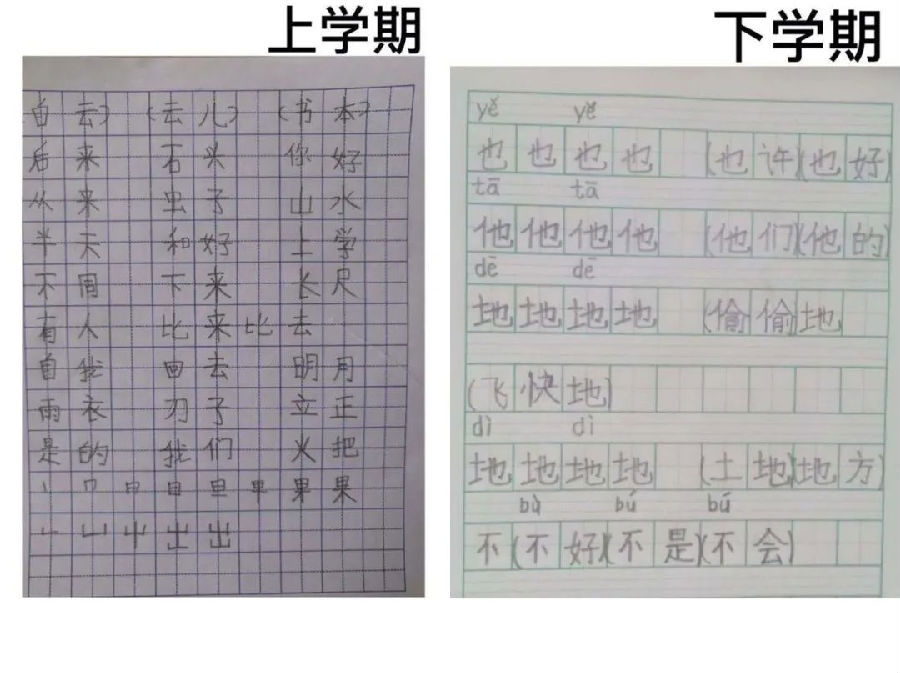 上学期
自去) (去儿) (书本)
后来 石头 你好
从来 虫子 山水
半天 和好 上学
不同 下来 长尺
有人 比来比去
自我 回去 明月
雨衣 刀子 立正
是的 我们 火把
丨 冂 日 日 旦 甲 果 果
出 出
下学期
yě yě
也也也也 (也许)(也好)
tā tā
他他他他 (他们)(他的)
dē dē
地地地地 (偷偷地
(飞快地)
dì dì
地地地地 (土地)(地方)
bù bú bú
不(不好)(不是)(不会)